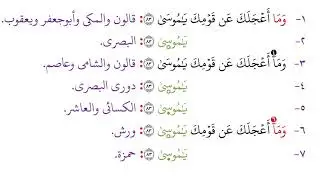 ١- وَمَا أَعْجَلَكَ عَن قَوْمِكَ يَـٰمُوسَىٰ ﴿٨٣﴾: قالون والمكى وأبوجعفر ويعقوب.
٢- يَـٰمُوسَىٰ ﴿٨٣﴾: البصرى.
٣- وَمَآ أَعْجَلَكَ عَن قَوْمِكَ يَـٰمُوسَىٰ ﴿٨٣﴾: قالون والشامى وعاصم.
٤- يَـٰمُوسَىٰ ﴿٨٣﴾: دورى البصرى.
٥- يَـٰمُوسَىٰ ﴿٨٣﴾: الكسائى والعاشر.
٦- وَمَآ أَعْجَلَكَ عَن قَوْمِكَ يَـٰمُوسَىٰ ﴿٨٣﴾: ورش.
٧- يَـٰمُوسَىٰ ﴿٨٣﴾: حمزة.